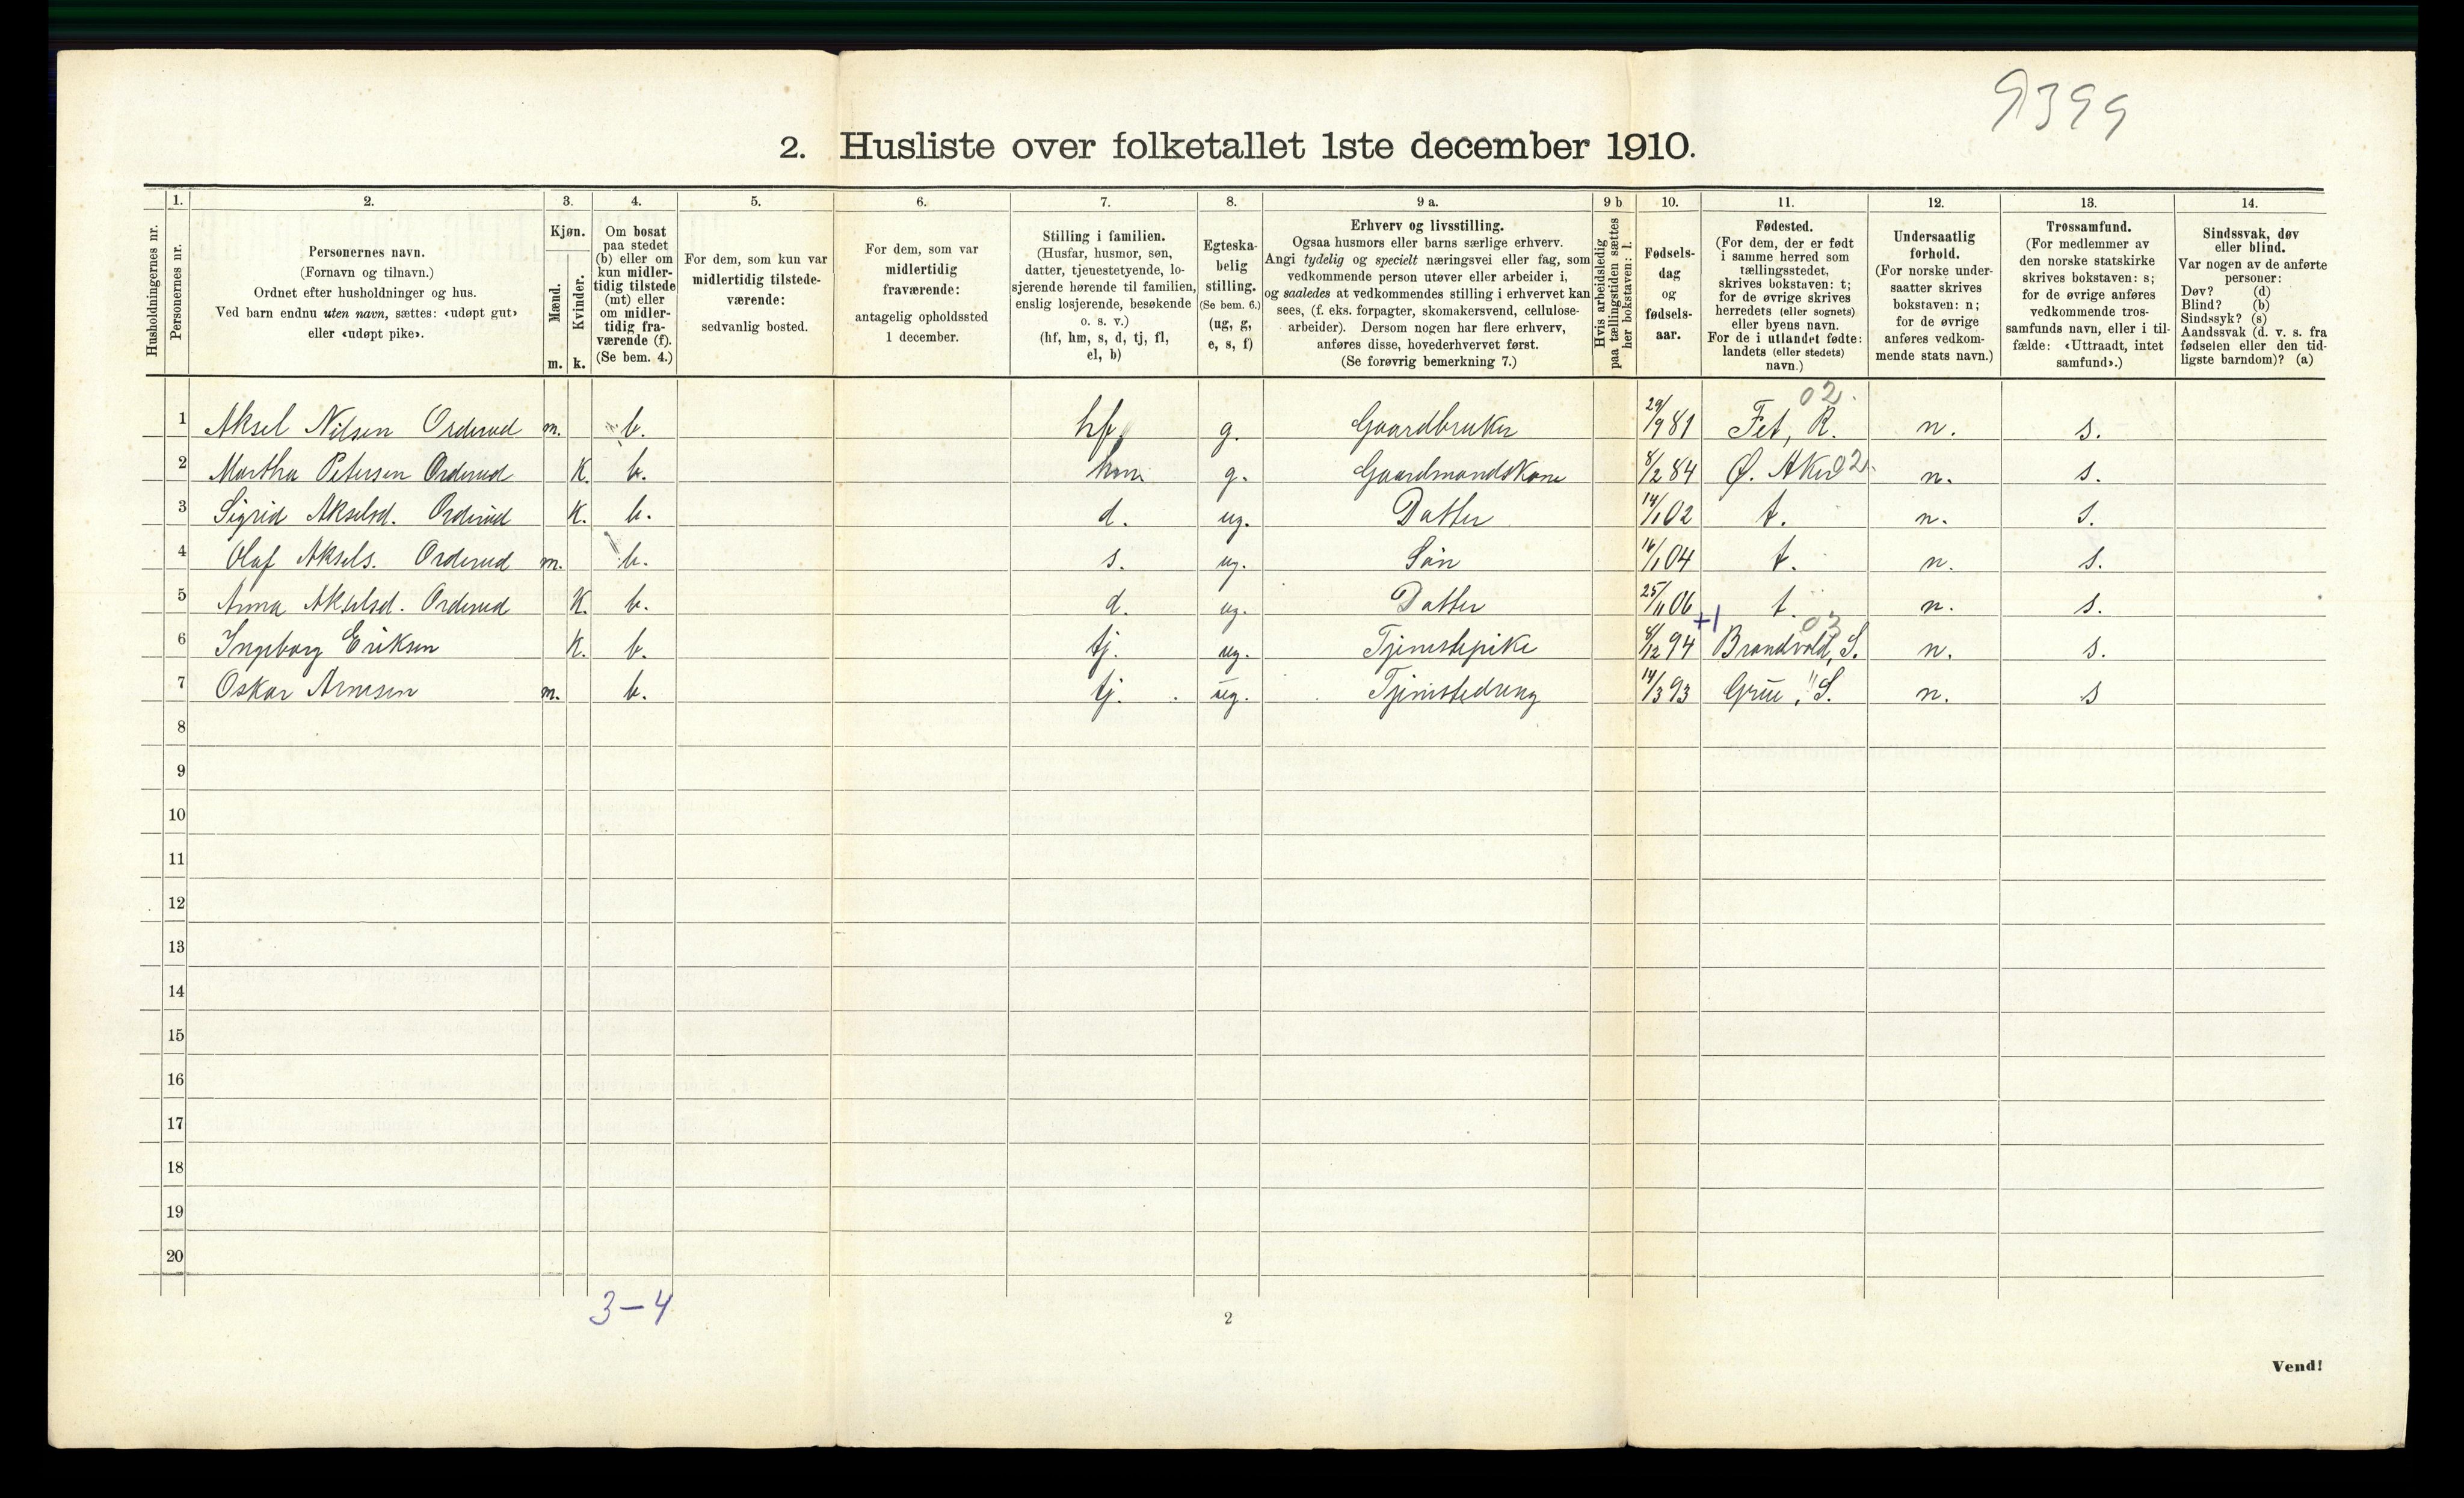 9399
2. Husliste over folketallet 1ste december 1910.
1. 2. 3. 4. 5. 6. 7. 8. 9 a. 9 b 10. 11. 12. 13. 14.
Husholdningernes nr.
Personernes nr.
Personernes navn.
(Fornavn og tilnavn.)
Ordnet efter husholdninger og hus.
Ved barn endnu uten navn, sættes: «udøpt gut»
eller «udøpt pike».
Kjøn.
Mænd.
Kvinder.
m. k.
Om bosat
paa stedet
(b) eller om
kun midler-
tidig tilstede
(mt) eller
om midler-
tidig fra-
værende (f).
(Se bem. 4.)
For dem, som kun var
midlertidig tilstede-
værende:
sedvanlig bosted.
For dem, som var
midlertidig
fraværende:
antagelig opholdssted
1 december.
Stilling i familien.
(Husfar, husmor, søn,
datter, tjenestetyende, lo-
sjerende hørende til familien,
enslig losjerende, besøkende
o. s. v.)
(hf, hm, s, d, tj, fl,
el, b)
Egteska-
belig
stilling.
(Se bem. 6.)
(ug, g,
e, s, f)
Erhverv og livsstilling.
Ogsaa husmors eller barns særlige erhverv.
Angi tydelig og specielt næringsvei eller fag, som
vedkommende person utøver eller arbeider i,
og saaledes at vedkommendes stilling i erhvervet kan
sees, (f. eks. forpagter, skomakersvend, cellulose-
arbeider). Dersom nogen har flere erhverv,
anføres disse, hovederhvervet først.
(Se forøvrig bemerkning 7.)
Hvis arbeidsledig
paa tællingstiden sættes
her bokstaven: l.
Fødsels-
dag
og
fødsels-
aar.
Fødested.
(For dem, der er født
i samme herred som
tællingsstedet,
skrives bokstaven: t;
for de øvrige skrives
herredets (eller sognets)
eller byens navn.
For de i utlandet fødte:
landets (eller stedets)
navn.)
Undersaatlig
forhold.
(For norske under-
saatter skrives
bokstaven: n;
for de øvrige
anføres vedkom-
mende stats navn.)
Trossamfund.
(For medlemmer av
den norske statskirke
skrives bokstaven: s;
for de øvrige anføres
vedkommende tros-
samfunds navn, eller i til-
fælde: «Uttraadt, intet
samfund».)
Sindssvak, døv
eller blind.
Var nogen av de anførte
personer:
Døv? (d)
Blind? (b)
Sindssyk? (s)
Aandssvak (d. v. s. fra
fødselen eller den tid-
ligste barndom)? (a)
02.
1 Aksel Nilsen Orderud m. b. hf. g. Gaardbruker 29/9 81 Fet, R. n. s.
2 Martha Petersen Orderud K. b. hm g. Gaardmandskone 8/2 84 Ø. Aker 02. n. s.
3 Sigrid Akselsd. Orderud K. b. d. ug. Datter 14/1 02 t. n. s.
4 Olaf Aksels. Orderud m. b. s. ug. Søn 16/1 04 t. n. s.
5 Anna Akselsd. Orderud K. b. d. ug. Datter 25/11 06 t. n. s.
+1 03
6 Ingeborg Eriksen K. b. tj. ug. Tjenestepike 8/12 94 Brandvold, S. n. s.
7 Oskar Arnesen m. b. tj. ug. Tjenestedreng 14/3 93 Grue, " S. n. s
8
9
10
11
12
13
14
15
16
17
18
19
20
3-4
2
Vend!